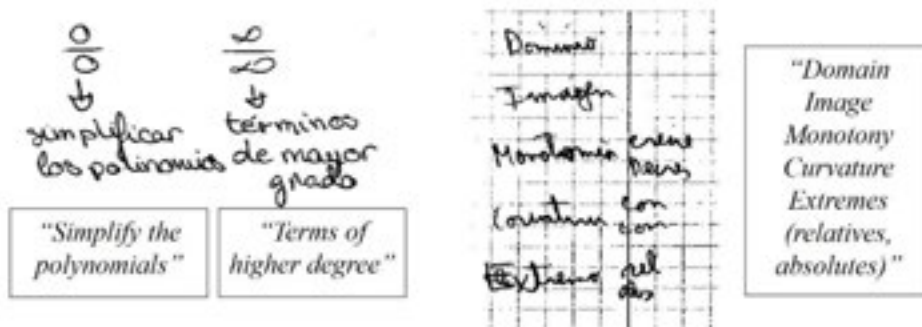 0/0 ∞/∞
↓ ↓
simplificar
los polinomios
términos
de mayor
grado
"Simplify the
polynomials"
"Terms of
higher degree"
Dominio
Imagen
Monotonía crece
decrec
Curvatura con
con
Extremo rel
abs
"Domain
Image
Monotony
Curvature
Extremes
(relatives,
absolutes)"